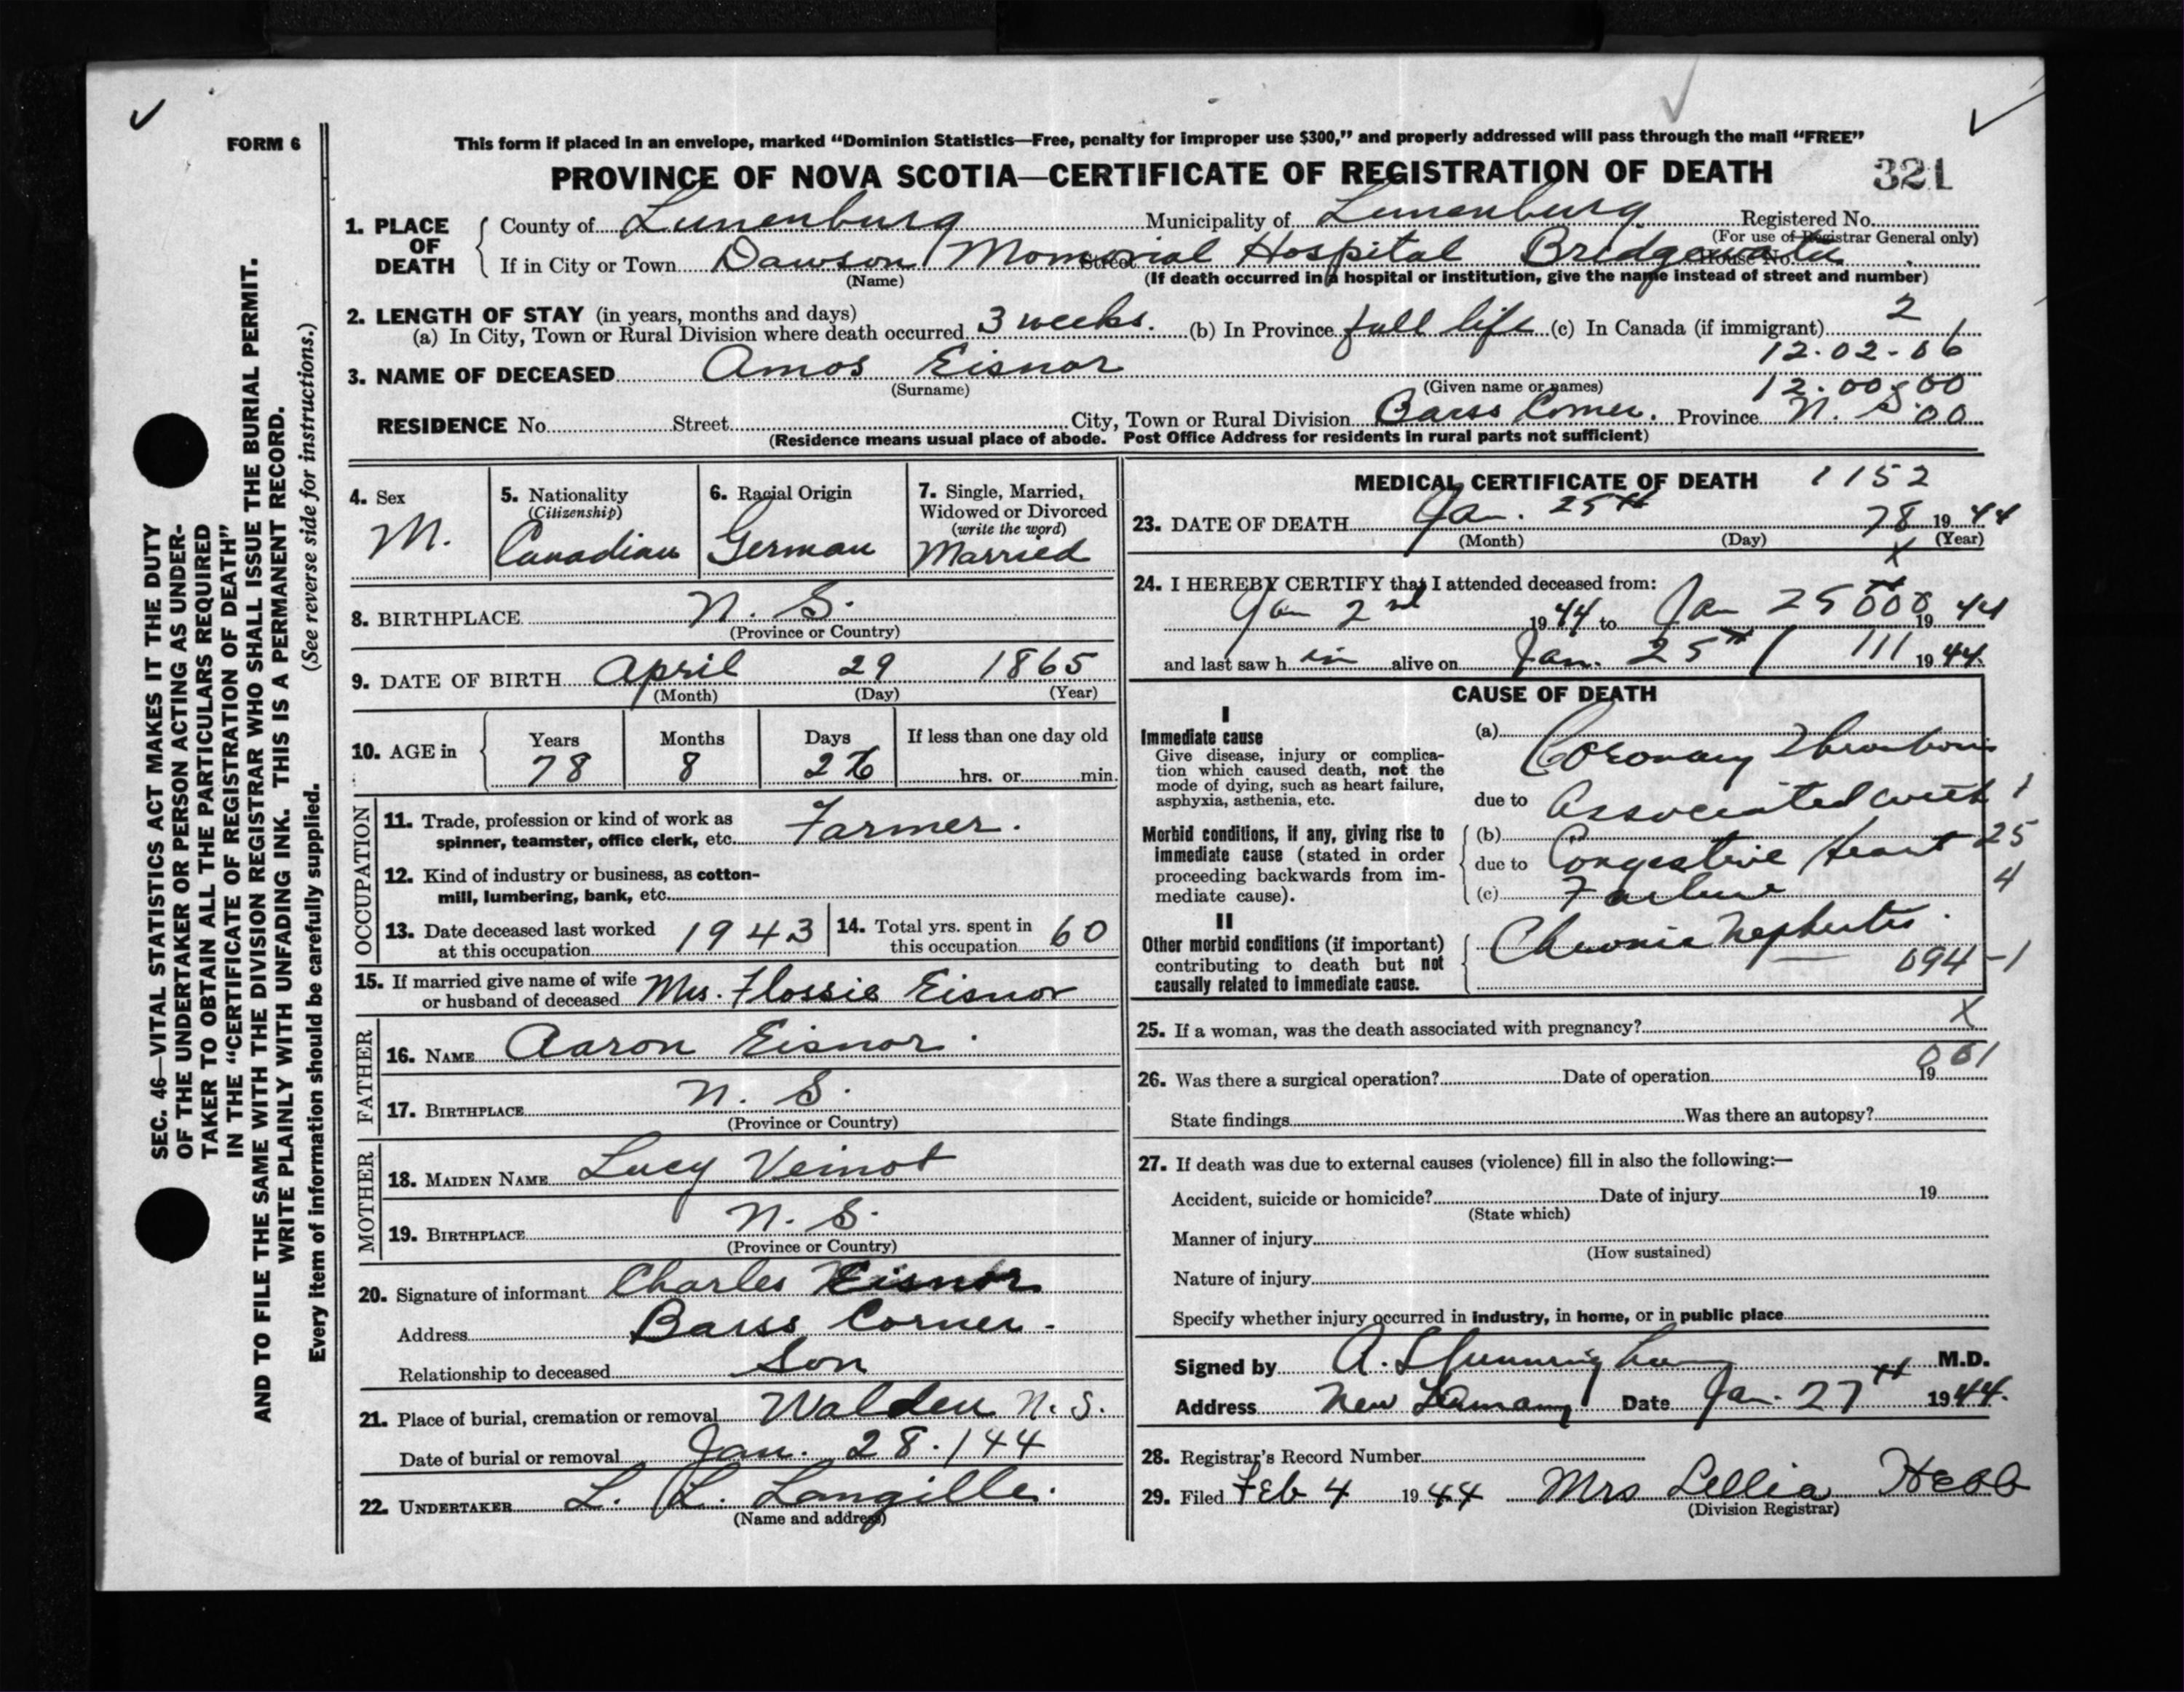 FORM 6
This form if placed in an envelope, marked “Dominion Statistics—Free, penalty for improper use $300,” and properly addressed will pass through the mail “FREE”
PROVINCE OF NOVA SCOTIA—CERTIFICATE OF REGISTRATION OF DEATH 321
SEC. 46—VITAL STATISTICS ACT MAKES IT THE DUTY
OF THE UNDERTAKER OR PERSON ACTING AS UNDER-
TAKER TO OBTAIN ALL THE PARTICULARS REQUIRED
IN THE “CERTIFICATE OF REGISTRATION OF DEATH”
AND TO FILE THE SAME WITH THE DIVISION REGISTRAR WHO SHALL ISSUE THE BURIAL PERMIT.
WRITE PLAINLY WITH UNFADING INK. THIS IS A PERMANENT RECORD.
Every item of information should be carefully supplied. (See reverse side for instructions.)
1. PLACE OF DEATH
County of Lunenburg Municipality of Lunenburg Registered No.
(For use of Registrar General only)
If in City or Town Dawson Memorial Hospital Bridgewater Street House No.
(Name) (If death occurred in a hospital or institution, give the name instead of street and number)
2. LENGTH OF STAY (in years, months and days) 2
(a) In City, Town or Rural Division where death occurred 3 weeks. (b) In Province full life (c) In Canada (if immigrant)
12-02-06
3. NAME OF DECEASED Amos Eisnor
(Surname) (Given name or names) 12.00500
RESIDENCE No. Street City, Town or Rural Division Barss Corner. Province N. S. 00
(Residence means usual place of abode. Post Office Address for residents in rural parts not sufficient)
4. Sex
M.
5. Nationality
(Citizenship)
Canadian
6. Racial Origin
German
7. Single, Married,
Widowed or Divorced
(write the word)
Married
8. BIRTHPLACE N. S.
(Province or Country)
9. DATE OF BIRTH April 29 1865
(Month) (Day) (Year)
10. AGE in
Years Months Days If less than one day old
78 8 26 hrs. or min.
OCCUPATION
11. Trade, profession or kind of work as
spinner, teamster, office clerk, etc. Farmer.
12. Kind of industry or business, as cotton-
mill, lumbering, bank, etc.
13. Date deceased last worked
at this occupation 1943
14. Total yrs. spent in
this occupation 60
15. If married give name of wife
or husband of deceased Mrs. Flossie Eisnor
FATHER
16. NAME Aaron Eisnor.
17. BIRTHPLACE N. S.
(Province or Country)
MOTHER
18. MAIDEN NAME Lucy Veinot
19. BIRTHPLACE N. S.
(Province or Country)
20. Signature of informant Charles Eisnor
Address Barss Corner.
Relationship to deceased Son
21. Place of burial, cremation or removal Walden N. S.
Date of burial or removal Jan. 28. /44
22. UNDERTAKER L. L. Langille.
(Name and address)
MEDICAL CERTIFICATE OF DEATH 1152
23. DATE OF DEATH Jan. 25th 78 1944
(Month) (Day) (Year)
X
24. I HEREBY CERTIFY that I attended deceased from:
Jan 2nd 1944 to Jan 25th 000 1944
and last saw h im alive on Jan. 25th / 111 1944.
CAUSE OF DEATH
I
Immediate cause
Give disease, injury or complica-
tion which caused death, not the
mode of dying, such as heart failure,
asphyxia, asthenia, etc.
(a) Coronary Thrombosis
due to Associated with 1
Morbid conditions, if any, giving rise to
immediate cause (stated in order
proceeding backwards from im-
mediate cause).
(b)
due to Congestive Heart 25
(c) Failure 4
II
Other morbid conditions (if important)
contributing to death but not
causally related to immediate cause.
Chronic Nephritis.
094-1
25. If a woman, was the death associated with pregnancy? X
061
26. Was there a surgical operation? Date of operation 19
State findings Was there an autopsy?
27. If death was due to external causes (violence) fill in also the following:—
Accident, suicide or homicide? Date of injury 19
(State which)
Manner of injury
(How sustained)
Nature of injury
Specify whether injury occurred in industry, in home, or in public place
Signed by A. M.D.
Address New Date Jan. 27th 1944.
28. Registrar's Record Number
29. Filed Feb 4 1944 Mrs Lellia Hebb
(Division Registrar)